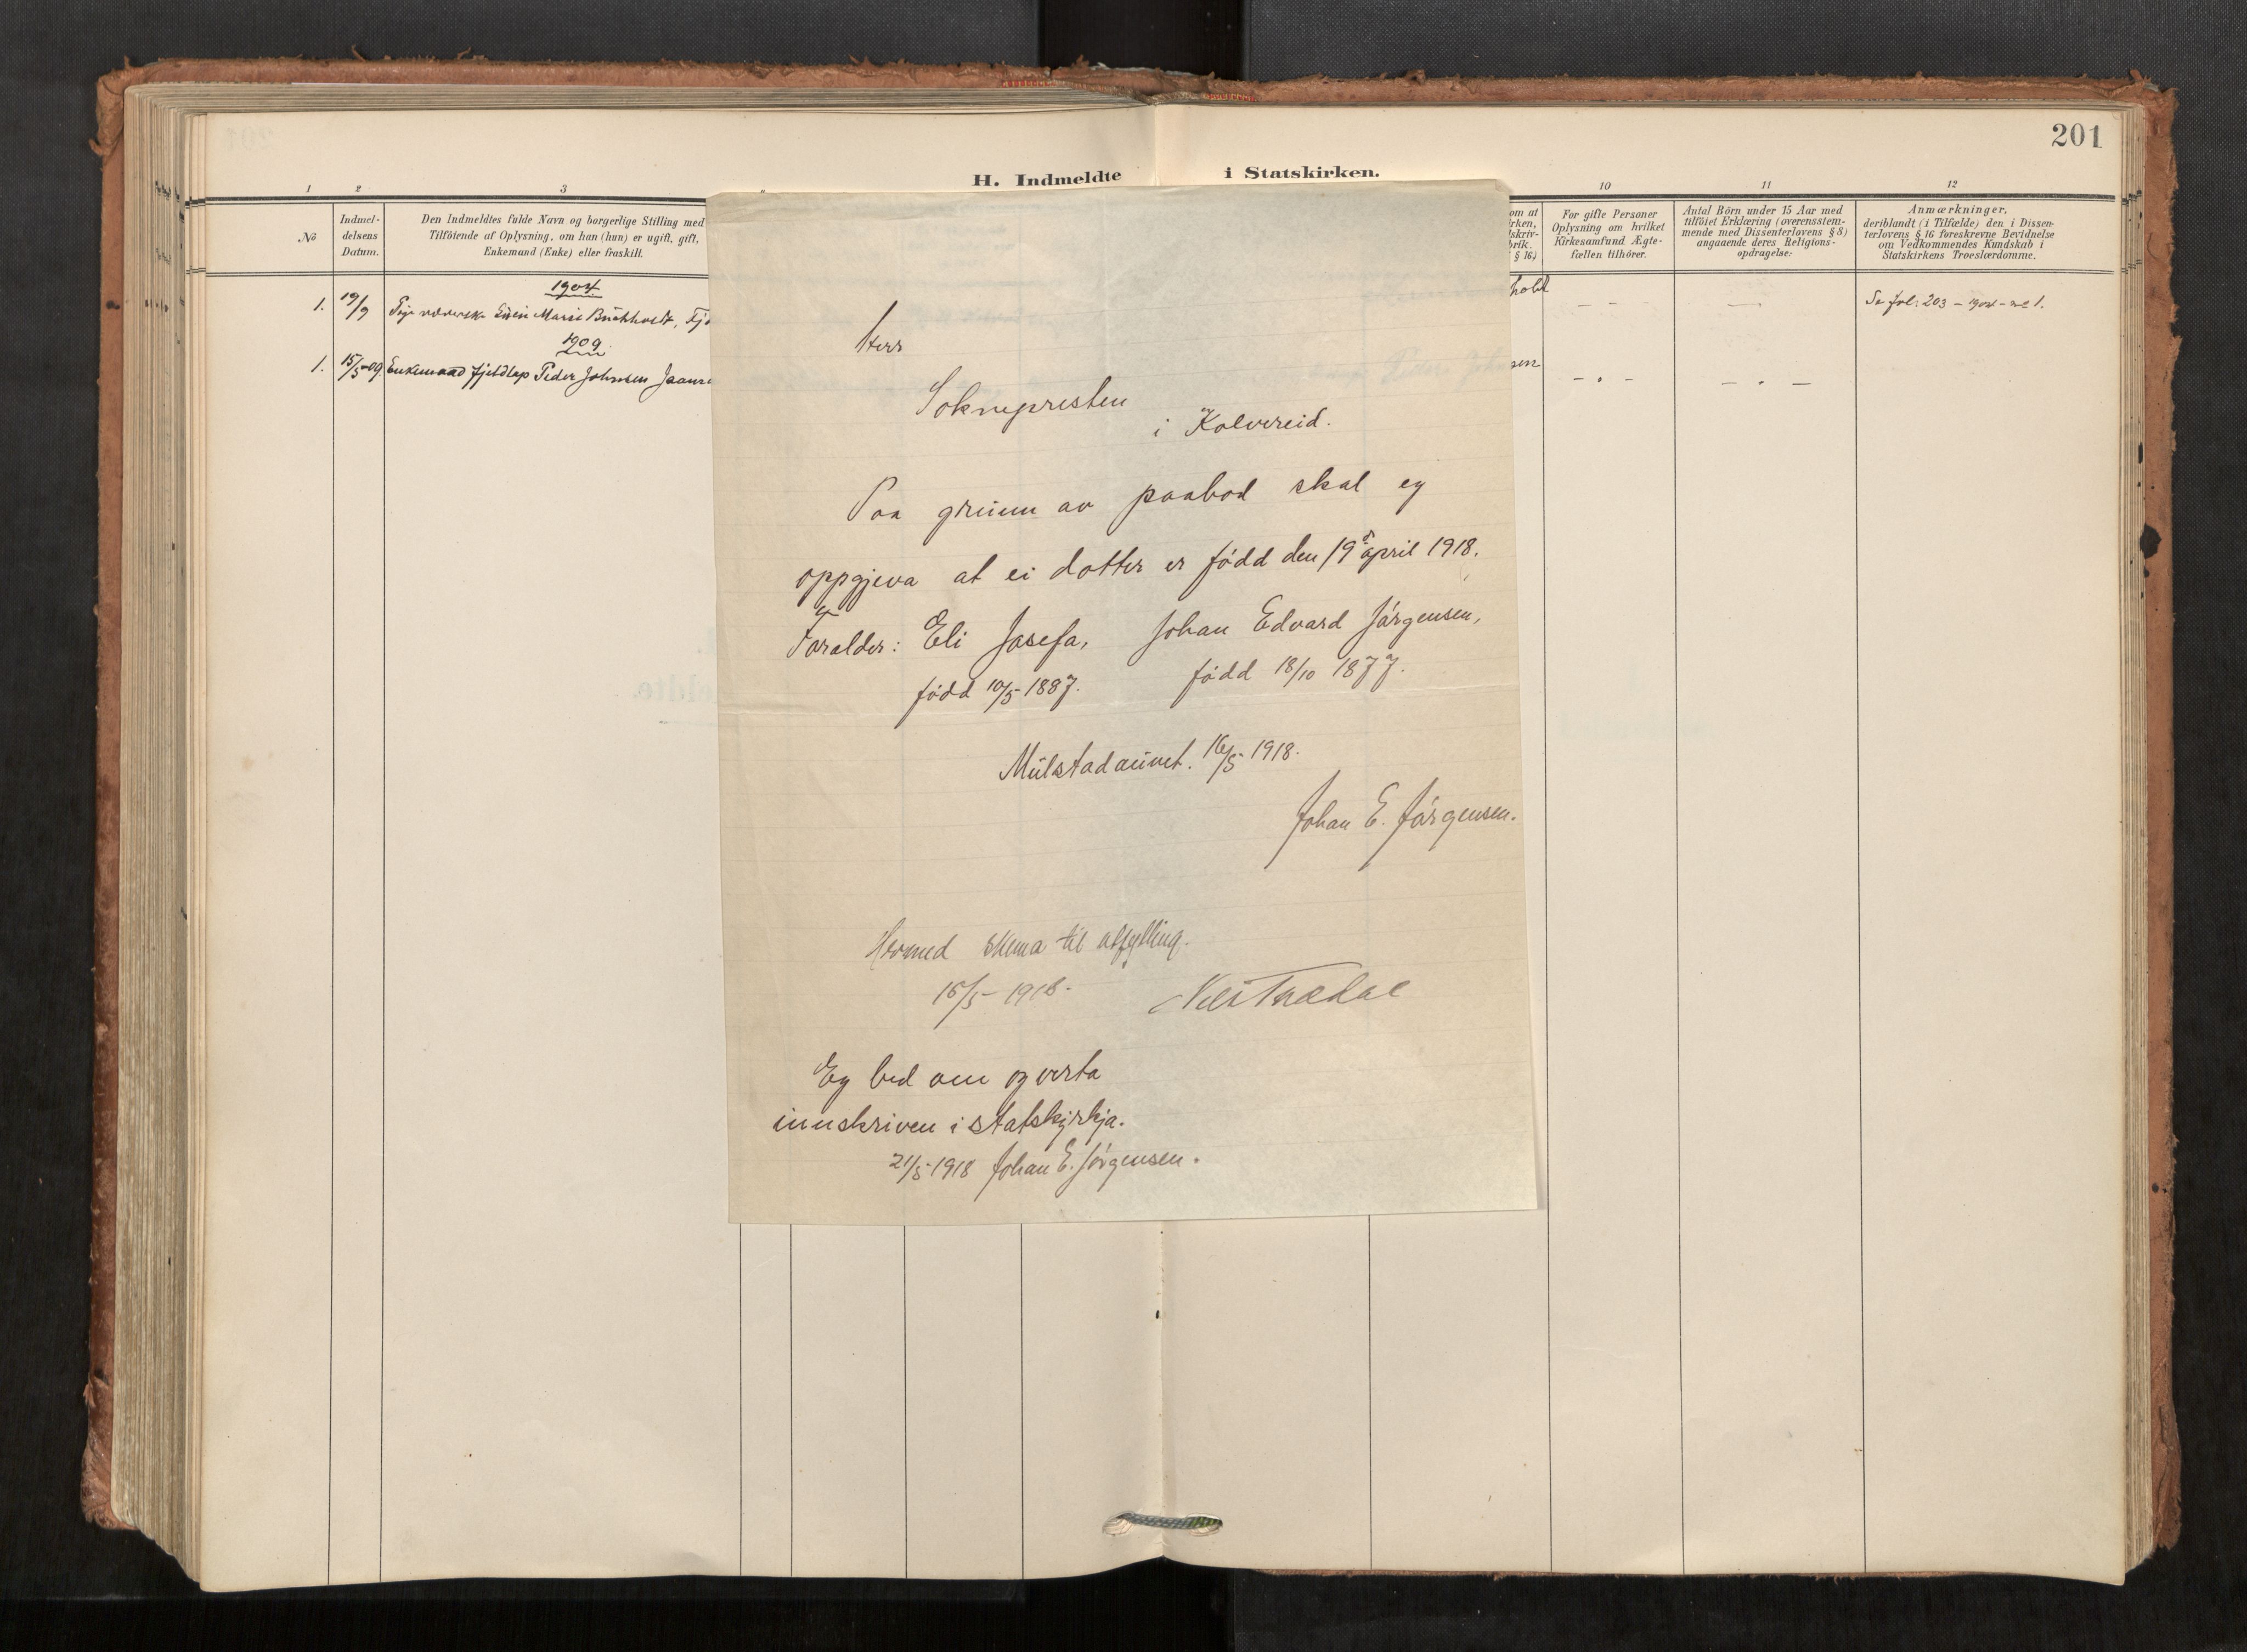 201
H. Indmeldte i Statskirken.
1 2 3 10 11 12
No
Indmel-
delsens
Datum.
Den Indmeldtes fulde Navn og borgerlige Stilling med
Tilföiende af Oplysning, om han (hun) er ugift, gift,
Enkemand (Enke) eller fraskilt.
om at
irken,
dskriv-
brik.
§ 16)
For gifte Personer
Oplysning om hvilket
Kirkesamfund Ægte-
fællen tilhörer.
Antal Börn under 15 Aar med
tilföiet Erklæring (overensstem-
mende med Dissenterlovens § 8)
angaaende deres Religions-
opdragelse:
Anmærkninger,
deriblandt (i Tilfælde) den i Dissen-
terlovens § 16 foreskrevne Bevidnelse
om Vedkommendes Kundskab i
Statskirkens Troeslærdomme.
1904
1. 19/9 Marie Buchholdt,
holdt
- -
—
Se fol: 203 - 1904 - no 1.
1909
1. 15/5-09 Enkemand fjeldlap Peder Johnsen
sen
- " -
- " -
Herr
Soknepresten
i Kolvereid.
Paa grunn av paabod skal eg
oppgjeva at ei dotter er född den 19de april 1918.
Foraldr: Eli Josefa, Johan Edvard Jörgensen,
född 10/5-1887. född 18/10 1877.
Mulstadaunet. 16/5-1918.
Johan E. Jörgensen.
Hermed skema til utfylling.
15/5-1918.
Eg bed om og verta
innskriven i statskyrkja.
21/5-1918 Johan E. Jörgensen.